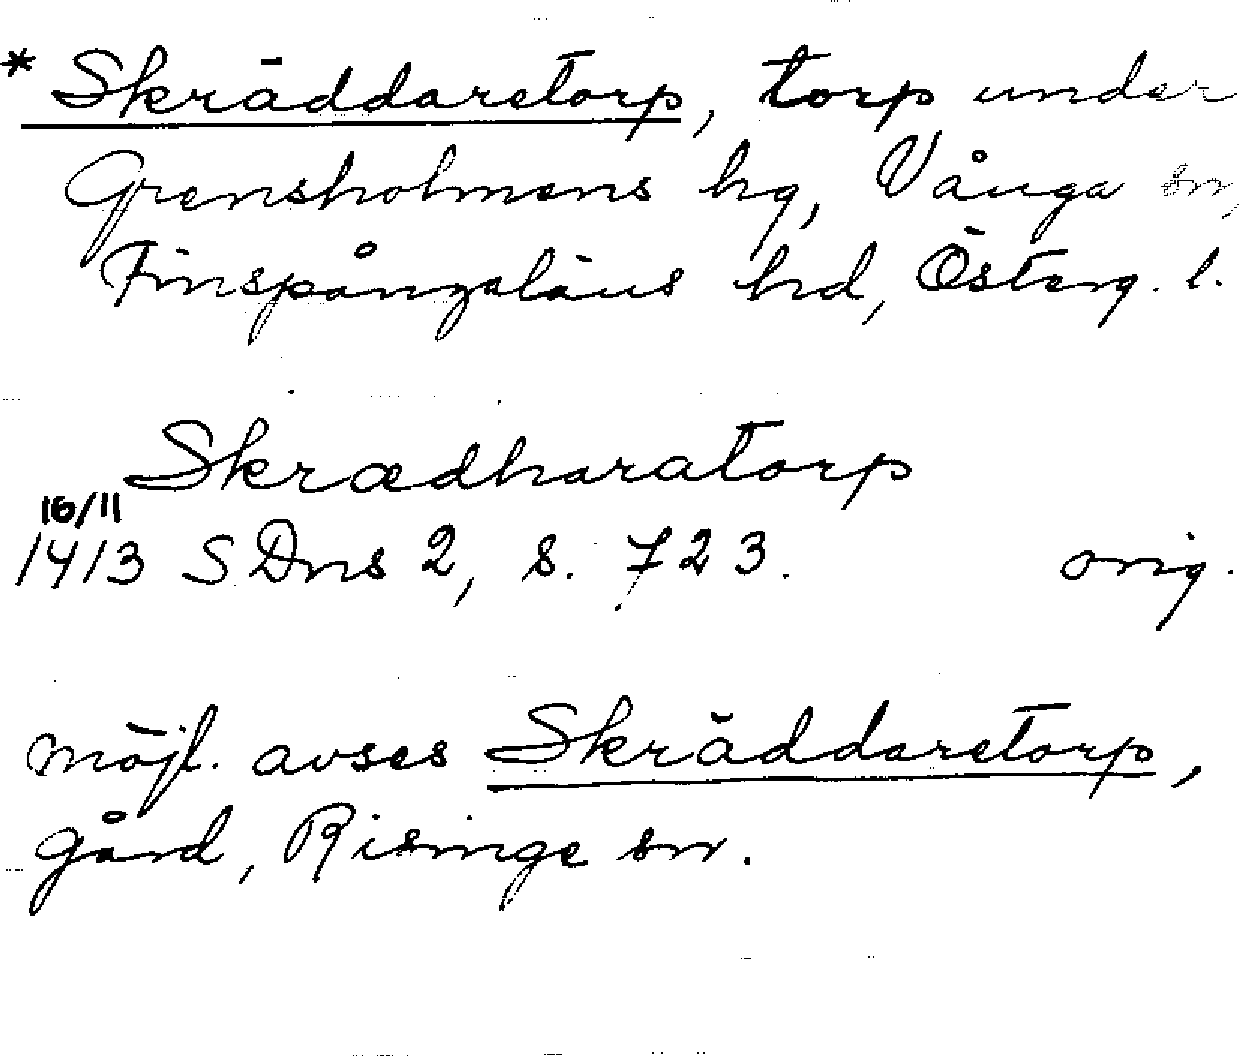 * Skräddaretorp, torp under
Grensholmens hg, Vånga sn,
Finspångaläns hd, Österg. l.
Skrædharatorp
16/11
1413 SDns 2, s. 723. orig.
möjl. avses Skräddaretorp,
gård, Risinge sn.